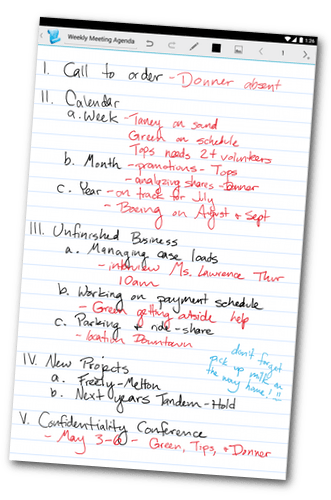 1:26
Weekly Meeting Agenda
1
I. Call to order - Donner absent
II. Calendar
a. Week - Taney on sound
Green on schedule
Tops needs 2+ volunteers
b. Month - promotions - Tops
- analyzing shares - Donner
c. Year - on track for July
- Boeing on August + Sept
III. Unfinished Business
a. Managing case loads
- interview Ms. Lawrence Thur
10am
b. Working on payment schedule
- Green getting outside help
c. Parking + ride-share
- location Downtown
don't forget
pick up milk on
the way home!!!
IV. New Projects
a. Freely - Melton
b. Next years Tandem - Hold
V. Confidentiality Conference
- May 3-6 - Green, Tips, + Donner